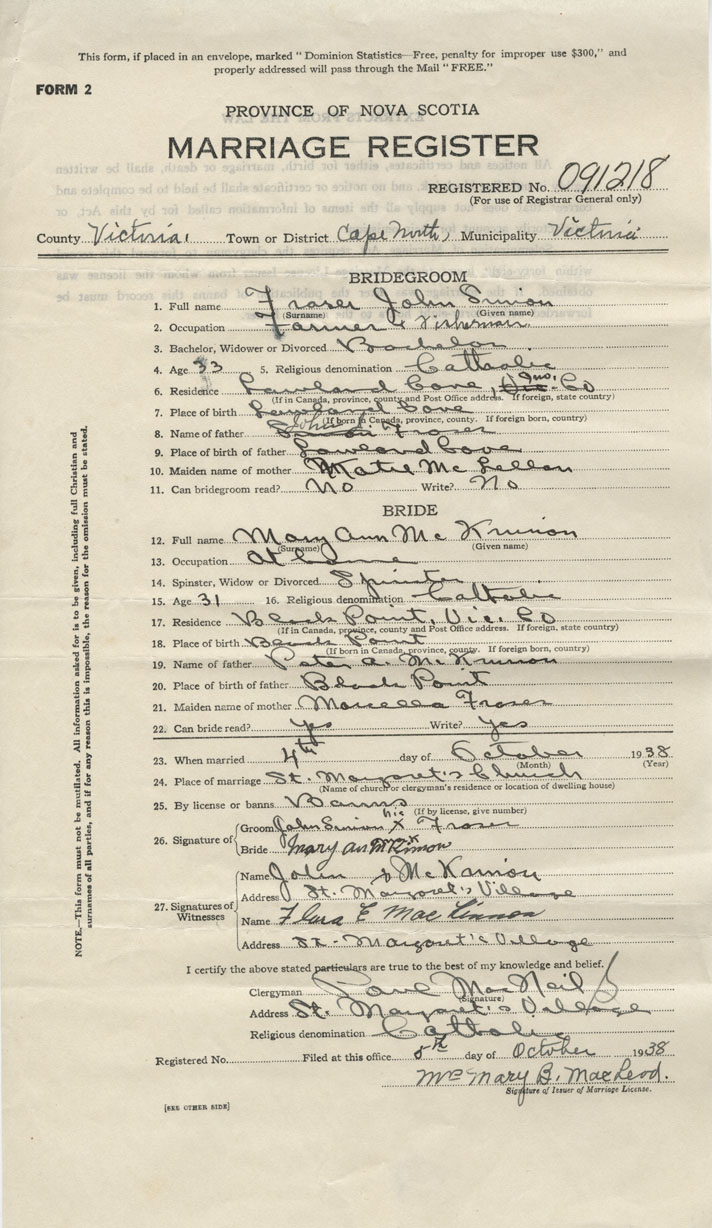 This form, if placed in an envelope, marked "Dominion Statistics—Free, penalty for improper use $300," and
properly addressed will pass through the Mail "FREE."
FORM 2
PROVINCE OF NOVA SCOTIA
MARRIAGE REGISTER
REGISTERED No. 091218
(For use of Registrar General only)
County Victoria Town or District Cape North, Municipality Victoria
BRIDEGROOM
1. Full name Fraser John Simon
(Surname) (Given name)
2. Occupation Farmer & Fisherman
3. Bachelor, Widower or Divorced Bachelor
4. Age 33 5. Religious denomination Catholic
6. Residence Lowland Cove, Inv. Co
(If in Canada, province, county and Post Office address. If foreign, state country)
7. Place of birth Lowland Cove
(If born in Canada, province, county. If foreign born, country)
8. Name of father John Fraser
9. Place of birth of father Lowland Cove
10. Maiden name of mother Matie McLellan
11. Can bridegroom read? No Write? No
BRIDE
12. Full name Mary Ann McKinnon
(Surname) (Given name)
13. Occupation At home
14. Spinster, Widow or Divorced Spinster
15. Age 31 16. Religious denomination Catholic
17. Residence Black Point, Vic. Co
(If in Canada, province, county and Post Office address. If foreign, state country)
18. Place of birth Black Point
(If born in Canada, province, county. If foreign born, country)
19. Name of father Peter A. McKinnon
20. Place of birth of father Black Point
21. Maiden name of mother Marcella Fraser
22. Can bride read? Yes Write? Yes
23. When married 4th day of October 1938
(Month) (Year)
24. Place of marriage St. Margaret's Church
(Name of church or clergyman's residence or location of dwelling house)
25. By license or banns Banns
(If by license, give number)
26. Signature of
Groom John Simon his X Fraser
Bride Mary Ann McKinnon
27. Signatures of Witnesses
Name John McKinnon
Address St. Margaret's Village
Name Flora E MacKinnon
Address St. Margaret's Village
I certify the above stated particulars are true to the best of my knowledge and belief.
Clergyman Paul MacNeil
(Signature)
Address St. Margaret's Village
Religious denomination Catholic
Registered No. Filed at this office 8th day of October 1938
Mrs Mary B. MacLeod.
Signature of Issuer of Marriage License.
[SEE OTHER SIDE]
NOTE.—This form must not be mutilated. All information asked for is to be given, including full Christian and
surnames of all parties, and if for any reason this is impossible, the reason for the omission must be stated.